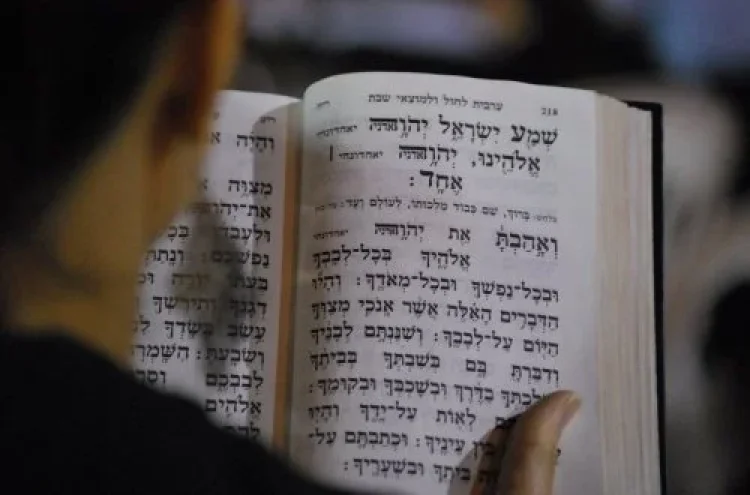 218 ערבית לחול ולמוצאי שבת
שְׁמַע יִשְׂרָאֵל יְהֹוָה אדני יאהדונהי
אֱלֹהֵינוּ, יְהֹוָה אדני יאהדונהי |
אֶחָד:
בלחש: בָּרוּךְ, שֵׁם כְּבוֹד מַלְכוּתוֹ, לְעוֹלָם וָעֶד:
וְאָהַבְתָּ אֵת יְהֹוָה אדני יאהדונהי
אֱלֹהֶיךָ בְּכָל־לְבָבְךָ
וּבְכָל־נַפְשְׁךָ וּבְכָל־מְאֹדֶךָ: וְהָיוּ
הַדְּבָרִים הָאֵלֶּה אֲשֶׁר אָנֹכִי מְצַוְּךָ
הַיּוֹם עַל־לְבָבֶךָ: וְשִׁנַּנְתָּם לְבָנֶיךָ
וְדִבַּרְתָּ בָּם בְּשִׁבְתְּךָ בְּבֵיתֶךָ
בַדֶּרֶךְ וּבְשָׁכְבְּךָ וּבְקוּמֶךָ:
לְאוֹת עַל־יָדֶךָ וְהָיוּ
בֵּין עֵינֶיךָ: וּכְתַבְתָּם עַל־
בֵּיתֶךָ וּבִשְׁעָרֶיךָ:
וְהָיָה
מִצְוֹת
אֶת־
וּלְעָבְדוֹ בְּכָל
נַפְשְׁכֶם: וְנָתַתִּ
בְּעִתּוֹ יוֹרֶה
דְגָנֶךָ וְתִירֹשְׁךָ
עֵשֶׂב בְּשָׂדְךָ
וְשָׂבָעְתָּ: הִשָּׁמְרוּ
לְבַבְכֶם
אֱלֹהִים